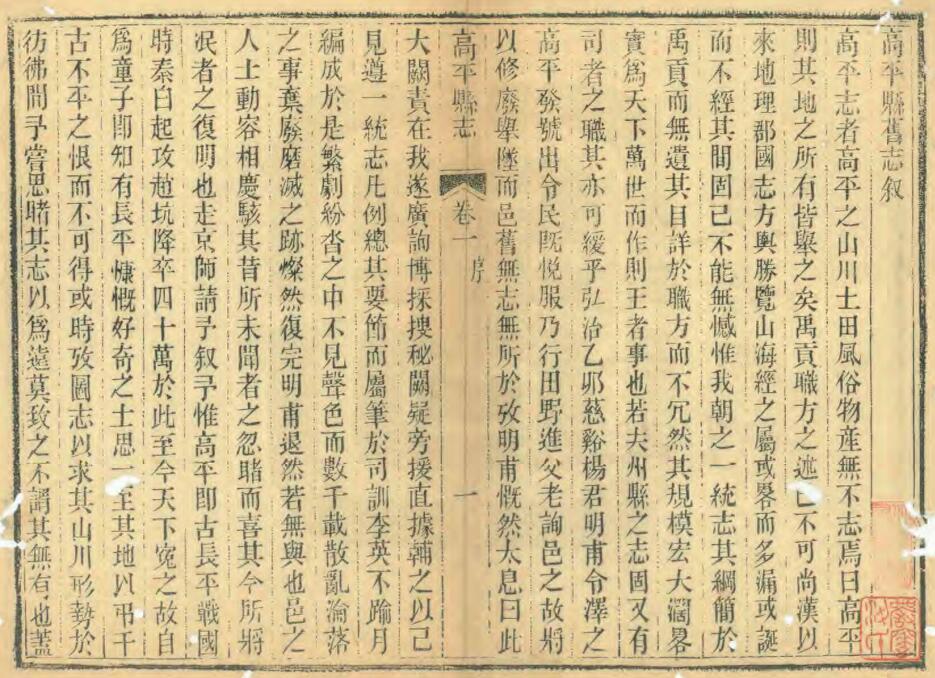 高平縣舊志叙
高平志者高平之山川土田風俗物產無不志焉曰高平
則其地之所有皆舉之矣禹貢職方之述已不可尚漢以
來地理郡國志方輿勝覽山海經之屬或畧而多漏或誕
而不經其間固已不能無憾惟我朝之一統志其綱簡於
禹貢而無遺其目詳於職方而不冗然其規模宏大濶畧
實爲天下萬世而作則王者事也若夫州縣之志固又有
司者之職其亦可緩乎弘治乙夘慈谿楊君明甫令澤之
高平發號出令民旣悅服乃行田野進父老詢邑之故將
以修廢舉墜而邑舊無志無所於攷明甫慨然太息曰此
高平縣志 卷一 序 一
大闕責在我遂廣詢博採搜秘闕疑旁援直據輔之以己
見遵一統志凡例總其要節而屬筆於司訓李英不踰月
編成於是繁劇紛沓之中不見聲色而數千載散亂淪落
之事棄廢磨滅之跡燦然復完明甫退然若無與也邑之
人士動容相慶駭其昔所未聞者之忽睹而喜其今所將
泯者之復明也走京師請予叙予惟高平卽古長平戰國
時秦白起攻趙坑降卒四十萬於此至今天下寃之故自
爲童子卽知有長平慷慨好奇之士思一至其地以弔千
古不平之恨而不可得或時攷圖志以求其山川形勢於
彷彿間予嘗思睹其志以爲遠莫致之不謂其無有也蓋